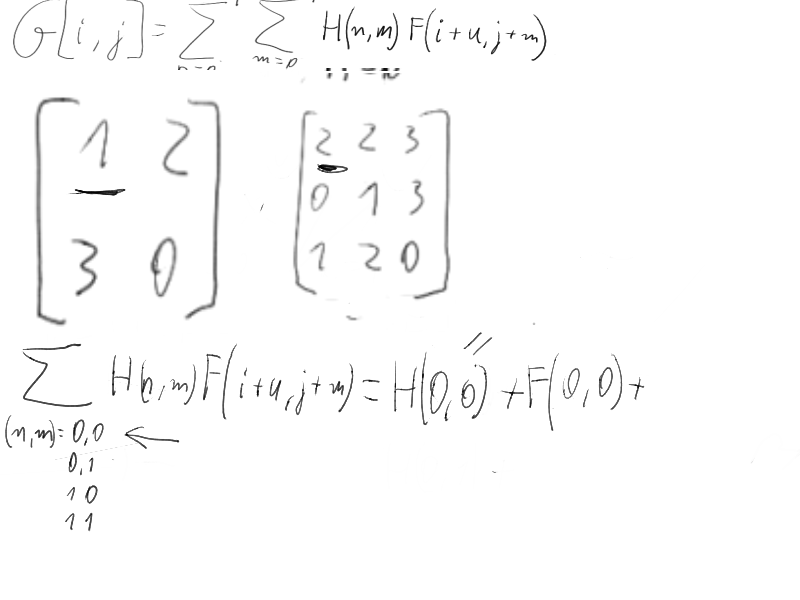 G[i,j] = Σ Σ H(n,m) F(i+u,j+m)
m=0
1 2
3 0
2 2 3
0 1 3
1 2 0
Σ H(n,m) F(i+u,j+m) = H(0,0) + F(0,0) +
(n,m)= 0,0 ←
0,1
1 0
1 1